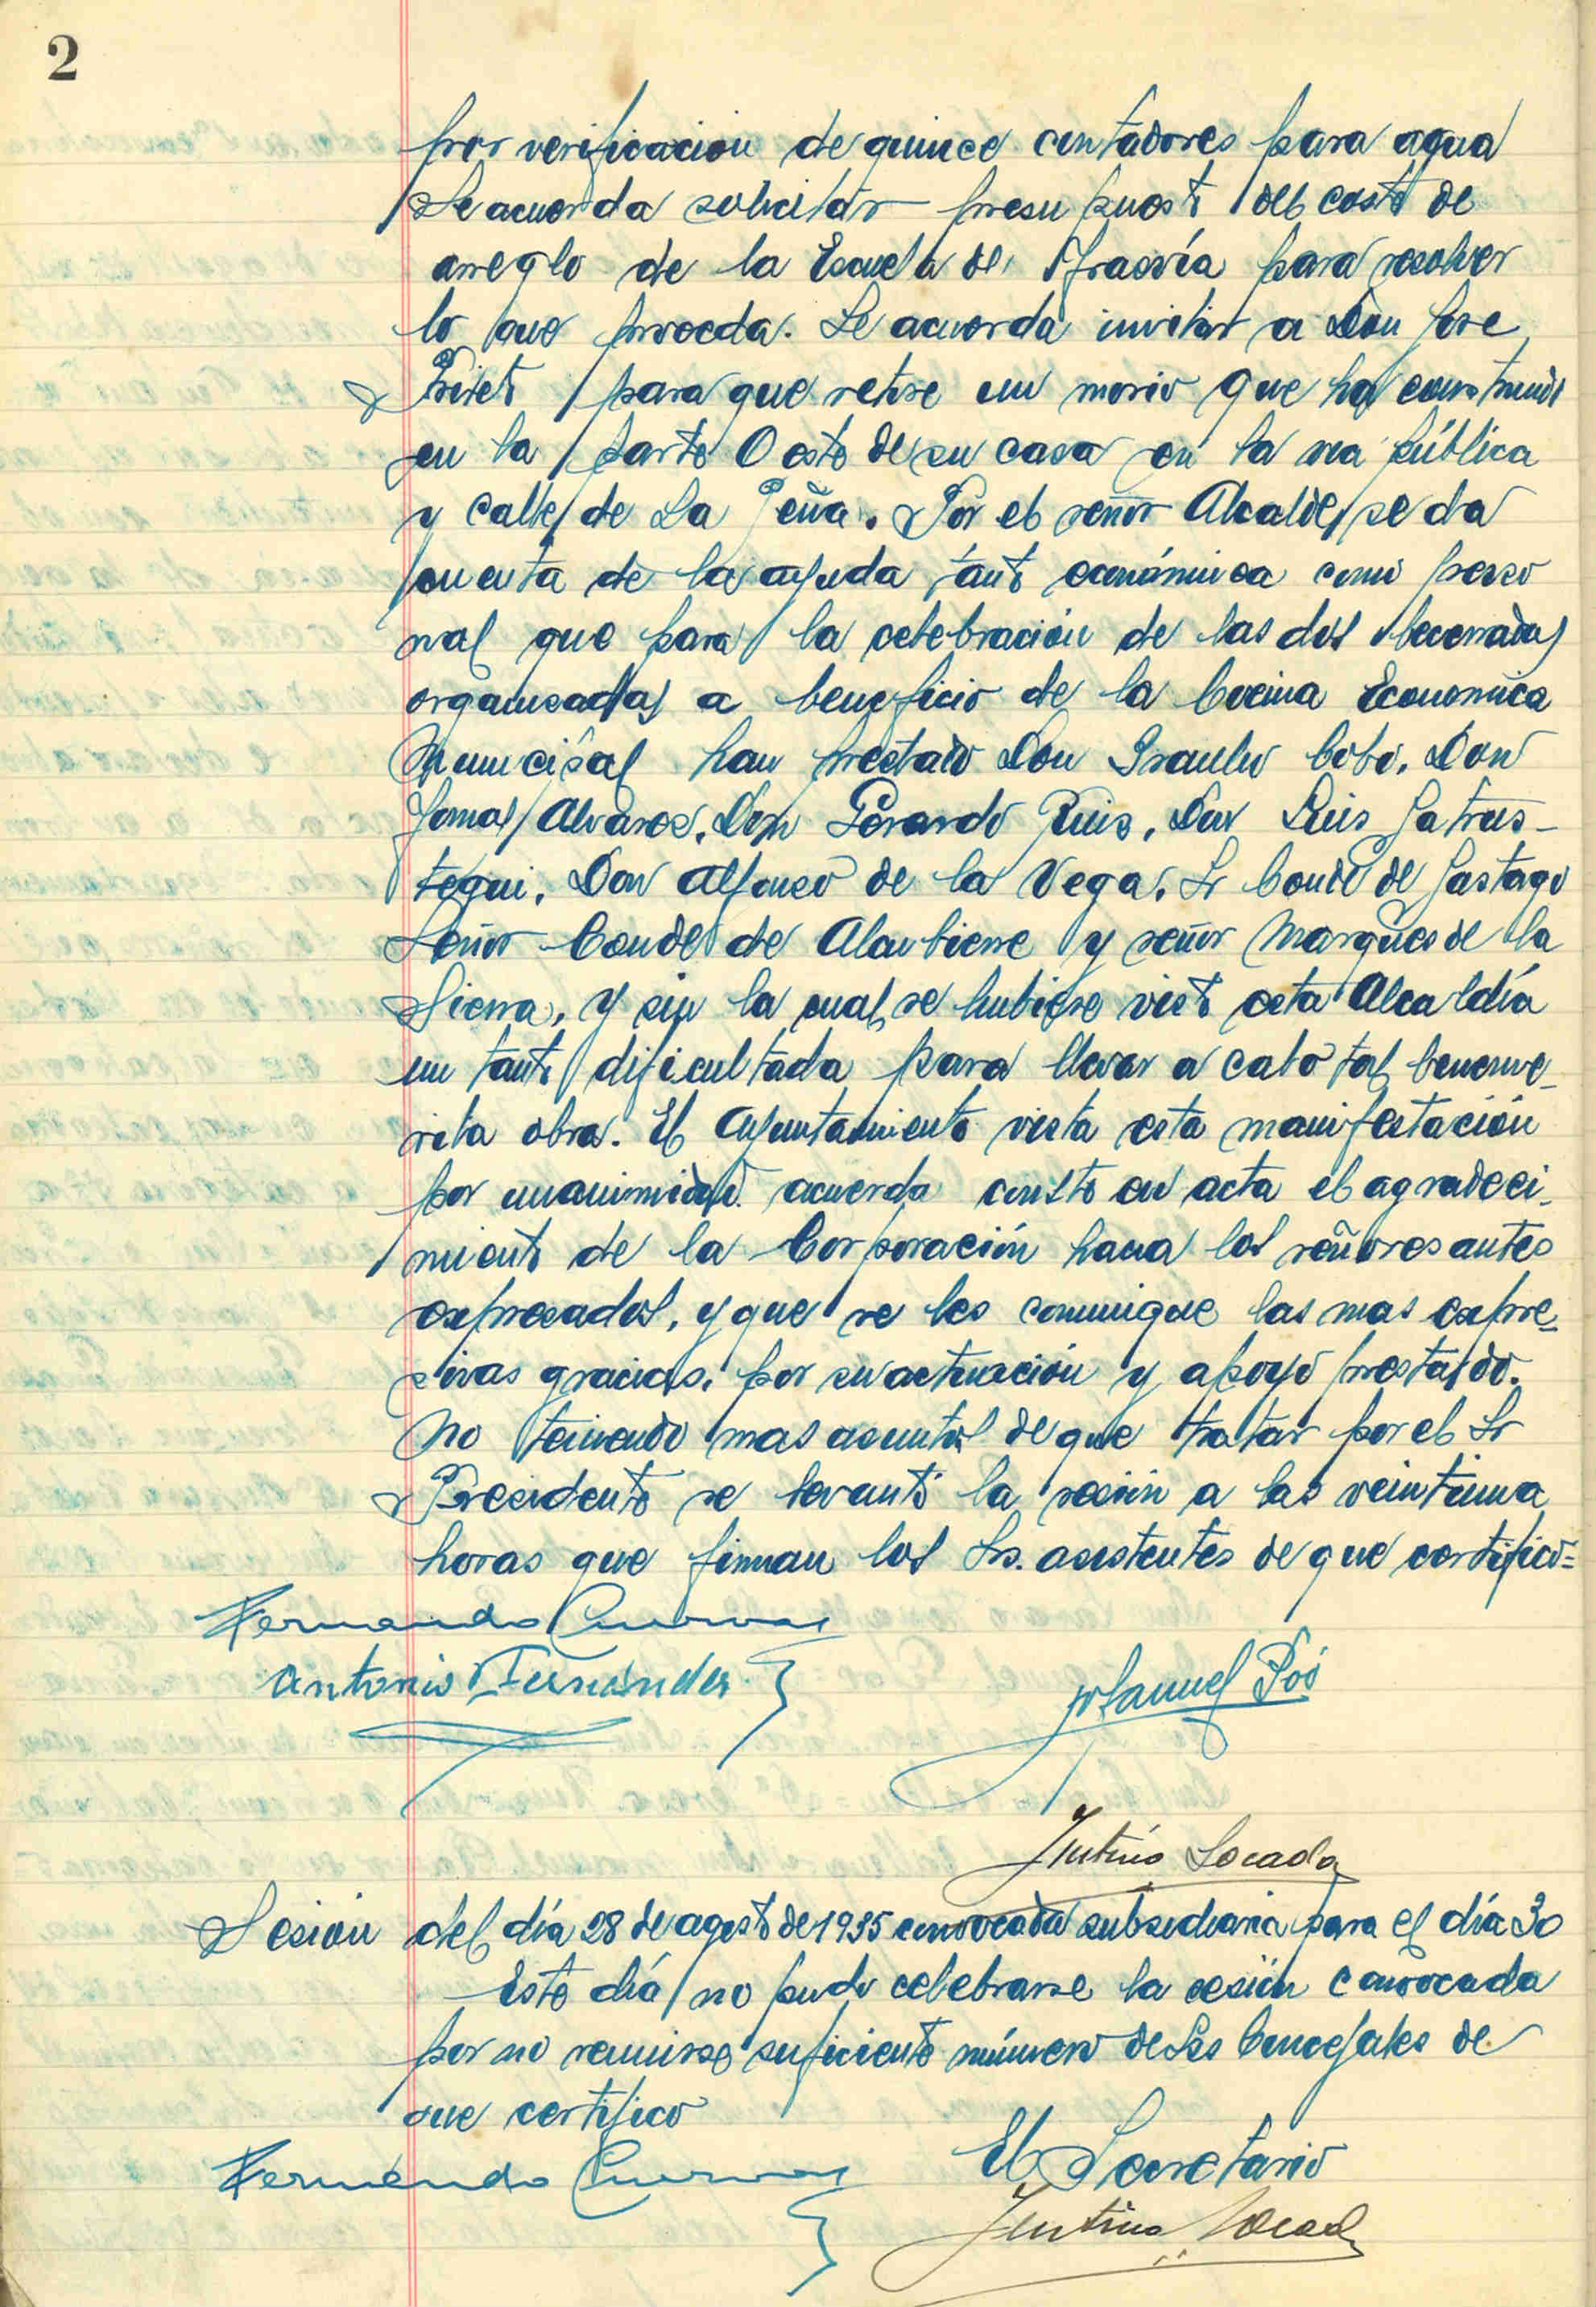 2
por verificacion de quince contadores para agua
Se acuerda solicitar presupuesto del costo de
arreglo de la Escuela de para resolver
lo que proceda. Se acuerda invitar a Don Jose
Prieto para que retire un morio que ha construido
en la parte Oeste de su casa en la via pública
y calle de La Peña. Por el señor Alcalde se da
cuenta de la ayuda tanto económica como perso
nal que para la celebración de las dos becerradas
organizadas a beneficio de la Cocina Economica
Municipal han prestado Don Braulio Cobo, Don
Tomas Alvarez, Don Gerardo Ruiz, Don Luis Satrus-
tegui, Don Alfonso de la Vega, Sr Conde de Sastago
Señor Conde de Alcubierre y señor Marques de la
Sierra, y sin la cual se hubiese visto esta Alcaldía
un tanto dificultada para llevar a cabo tal beneme-
rita obra. El Ayuntamiento vista esta manifestación
por unanimidad acuerda conste en acta el agradeci-
miento de la Corporación hacia los señores antes
expresados, y que se les comunique las mas expre-
sivas gracias, por su actuación y apoyo prestado.
No teniendo mas asuntos de que tratar por el Sr
Presidente se levantó la sesión a las veintiuna
horas que firman los Srs. asistentes de que certifico=
Fernando Cuevas
Antonio Fernández
Manuel Pós
Sesión del día 28 de agosto de 1935 convocada subsidiaria para el día 30
Este día no pudo celebrarse la sesión convocada
por no reunirse suficiente número de Srs Concejales de
que certifico
Fernando Cuevas
El Secretario